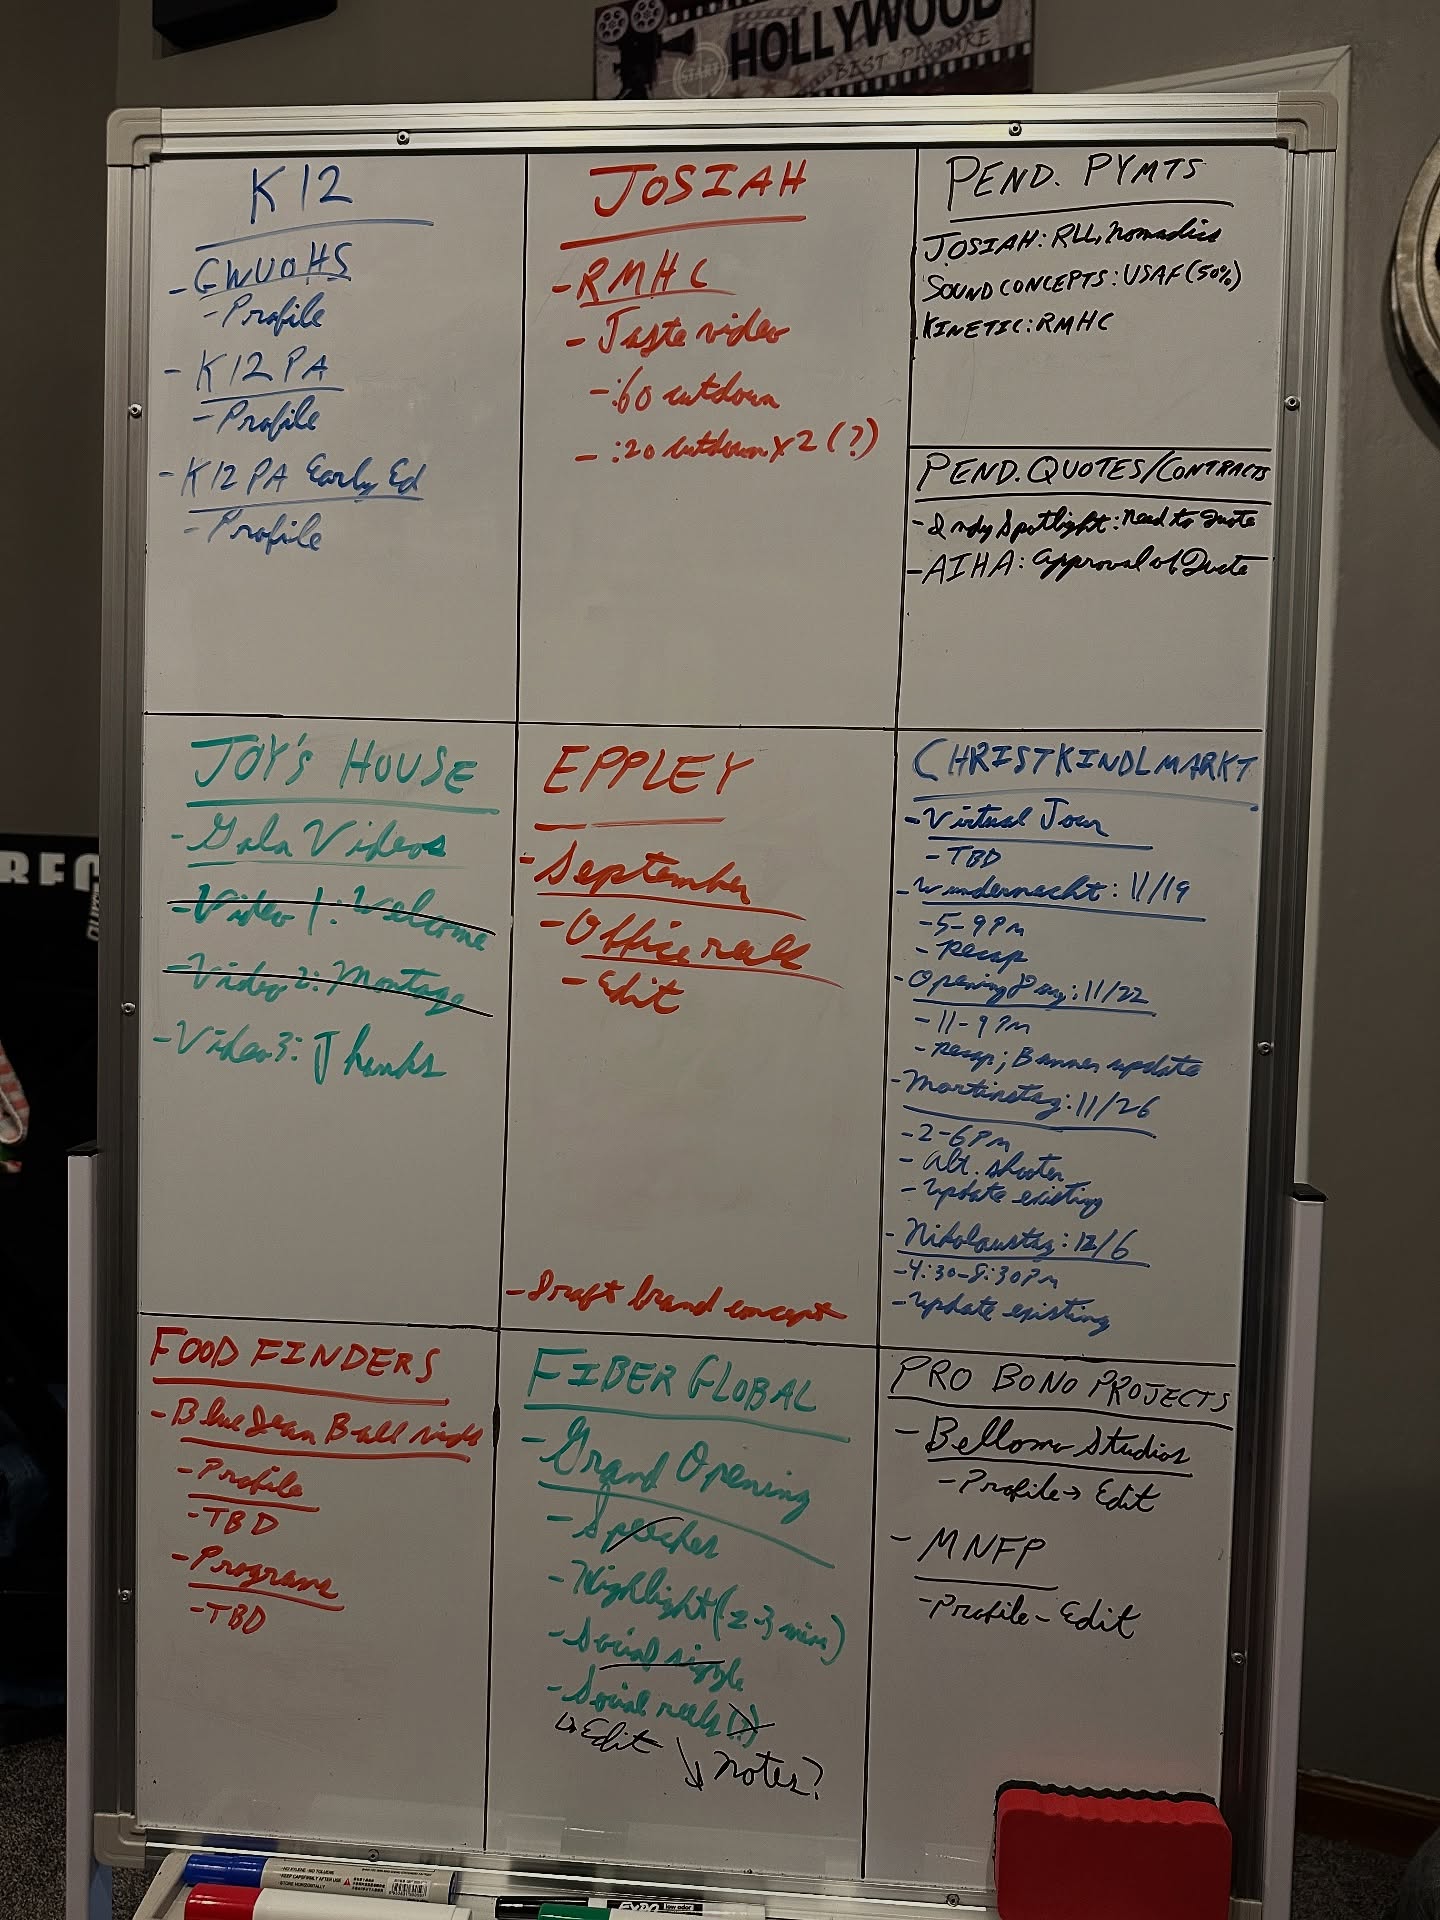 HOLLYWOOD
START
BEST PICTURE
K12
- GWUOHS
- Profile
- K12 PA
- Profile
- K12 PA Early Ed
- Profile
JOSIAH
- RMHC
- Taste video
- :60 cutdown
- :20 cutdown x 2 (?)
PEND. PYMTS
JOSIAH: RLL, Nomadics
SOUND CONCEPTS: USAF (50%)
KINETIC: RMHC
PEND. QUOTES/CONTRACTS
- Indy Spotlight: need to quote
- AIHA: Approval of Quote
JOY'S HOUSE
- Gala Videos
- Video 1: Welcome
- Video 2: Montage
- Video 3: Thanks
EPPLEY
- September
- Office reels
- Edit
- Draft brand concept
CHRISTKINDLMARKT
- Virtual Tour
- TBD
- Wundernacht: 11/19
- 5-9 PM
- Recap
- Opening Day: 11/22
- 11-9 PM
- Recap; Banner update
- Martinstag: 11/26
- 2-6 PM
- Alt. shooter
- Update existing
- Nikolaustag: 12/6
- 4:30-8:30 PM
- Update existing
FOOD FINDERS
- Blue Jean Ball vids
- Profile
- TBD
- Programs
- TBD
FIBER GLOBAL
- Grand Opening
- Speeches
- Highlight (2-3 min)
- Social sizzle
- Social reels (?)
↳ Edit ↘ Notes?
PRO BONO PROJECTS
- Bellomo Studios
- Profile → Edit
- MNFP
- Profile - Edit
RFC
EXPO low odor